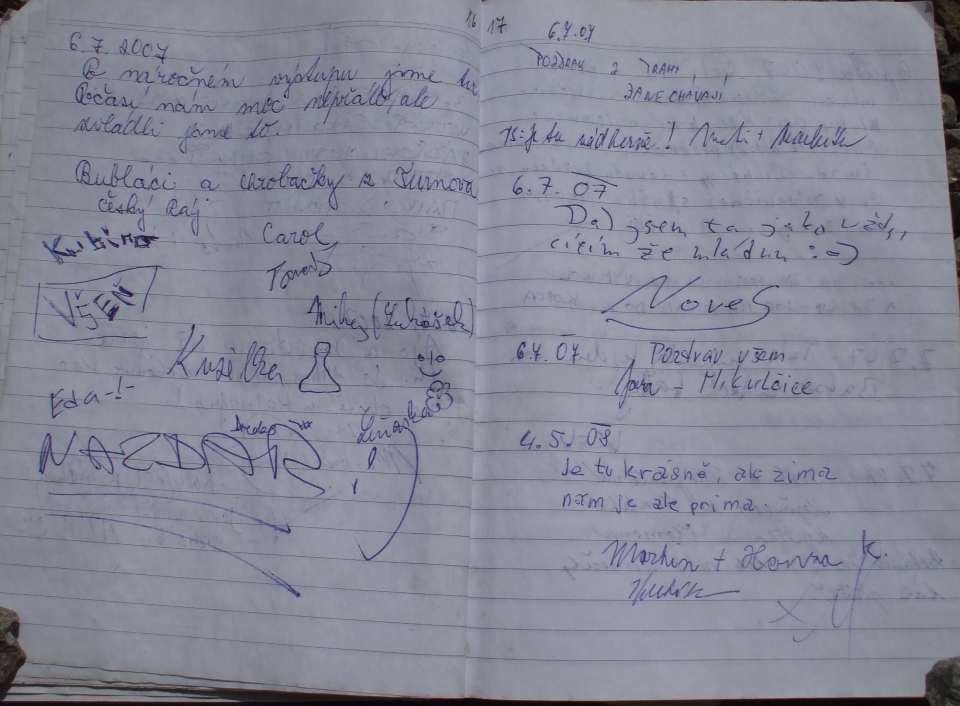 16
6.7. 2007
Po náročném výstupu jsme tu
Počasí nám moc nepřálo, ale
zvládli jsme to.
Bubláci a chrobáčky z Turnova
český ráj
Carol
Tomáš
VšEŇ
Mihej (Lukášek)
Kuželka
Eda-!-
NAZDAR
17
6.7.07
POZDRAV Z TRAHY
ps: je tu nádherně!
6.7.07
Dal jsem ta jako vždy,
cítím že mládnu :=)
NoveS
6.7.07 Pozdrav všem
Jara - Mikulčice
4.5.08
Je tu krásně, ale zima
nám je ale prima
Martin + Honza K.